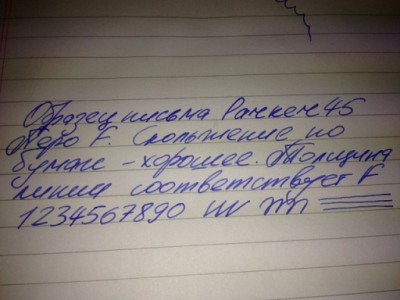 Образец письма Ранкен 45
Перо F. Скольжение по
бумаге - хорошее. Толщина
линии соответствует F
1234567890